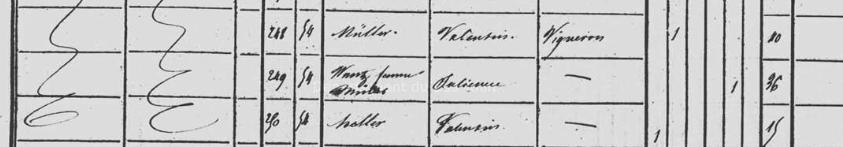 248 54 Müller. Valentin. Vigneron 1
249 54 Wantz femme — 1 36
Müller
250 54 Müller Valentin. — 1 15